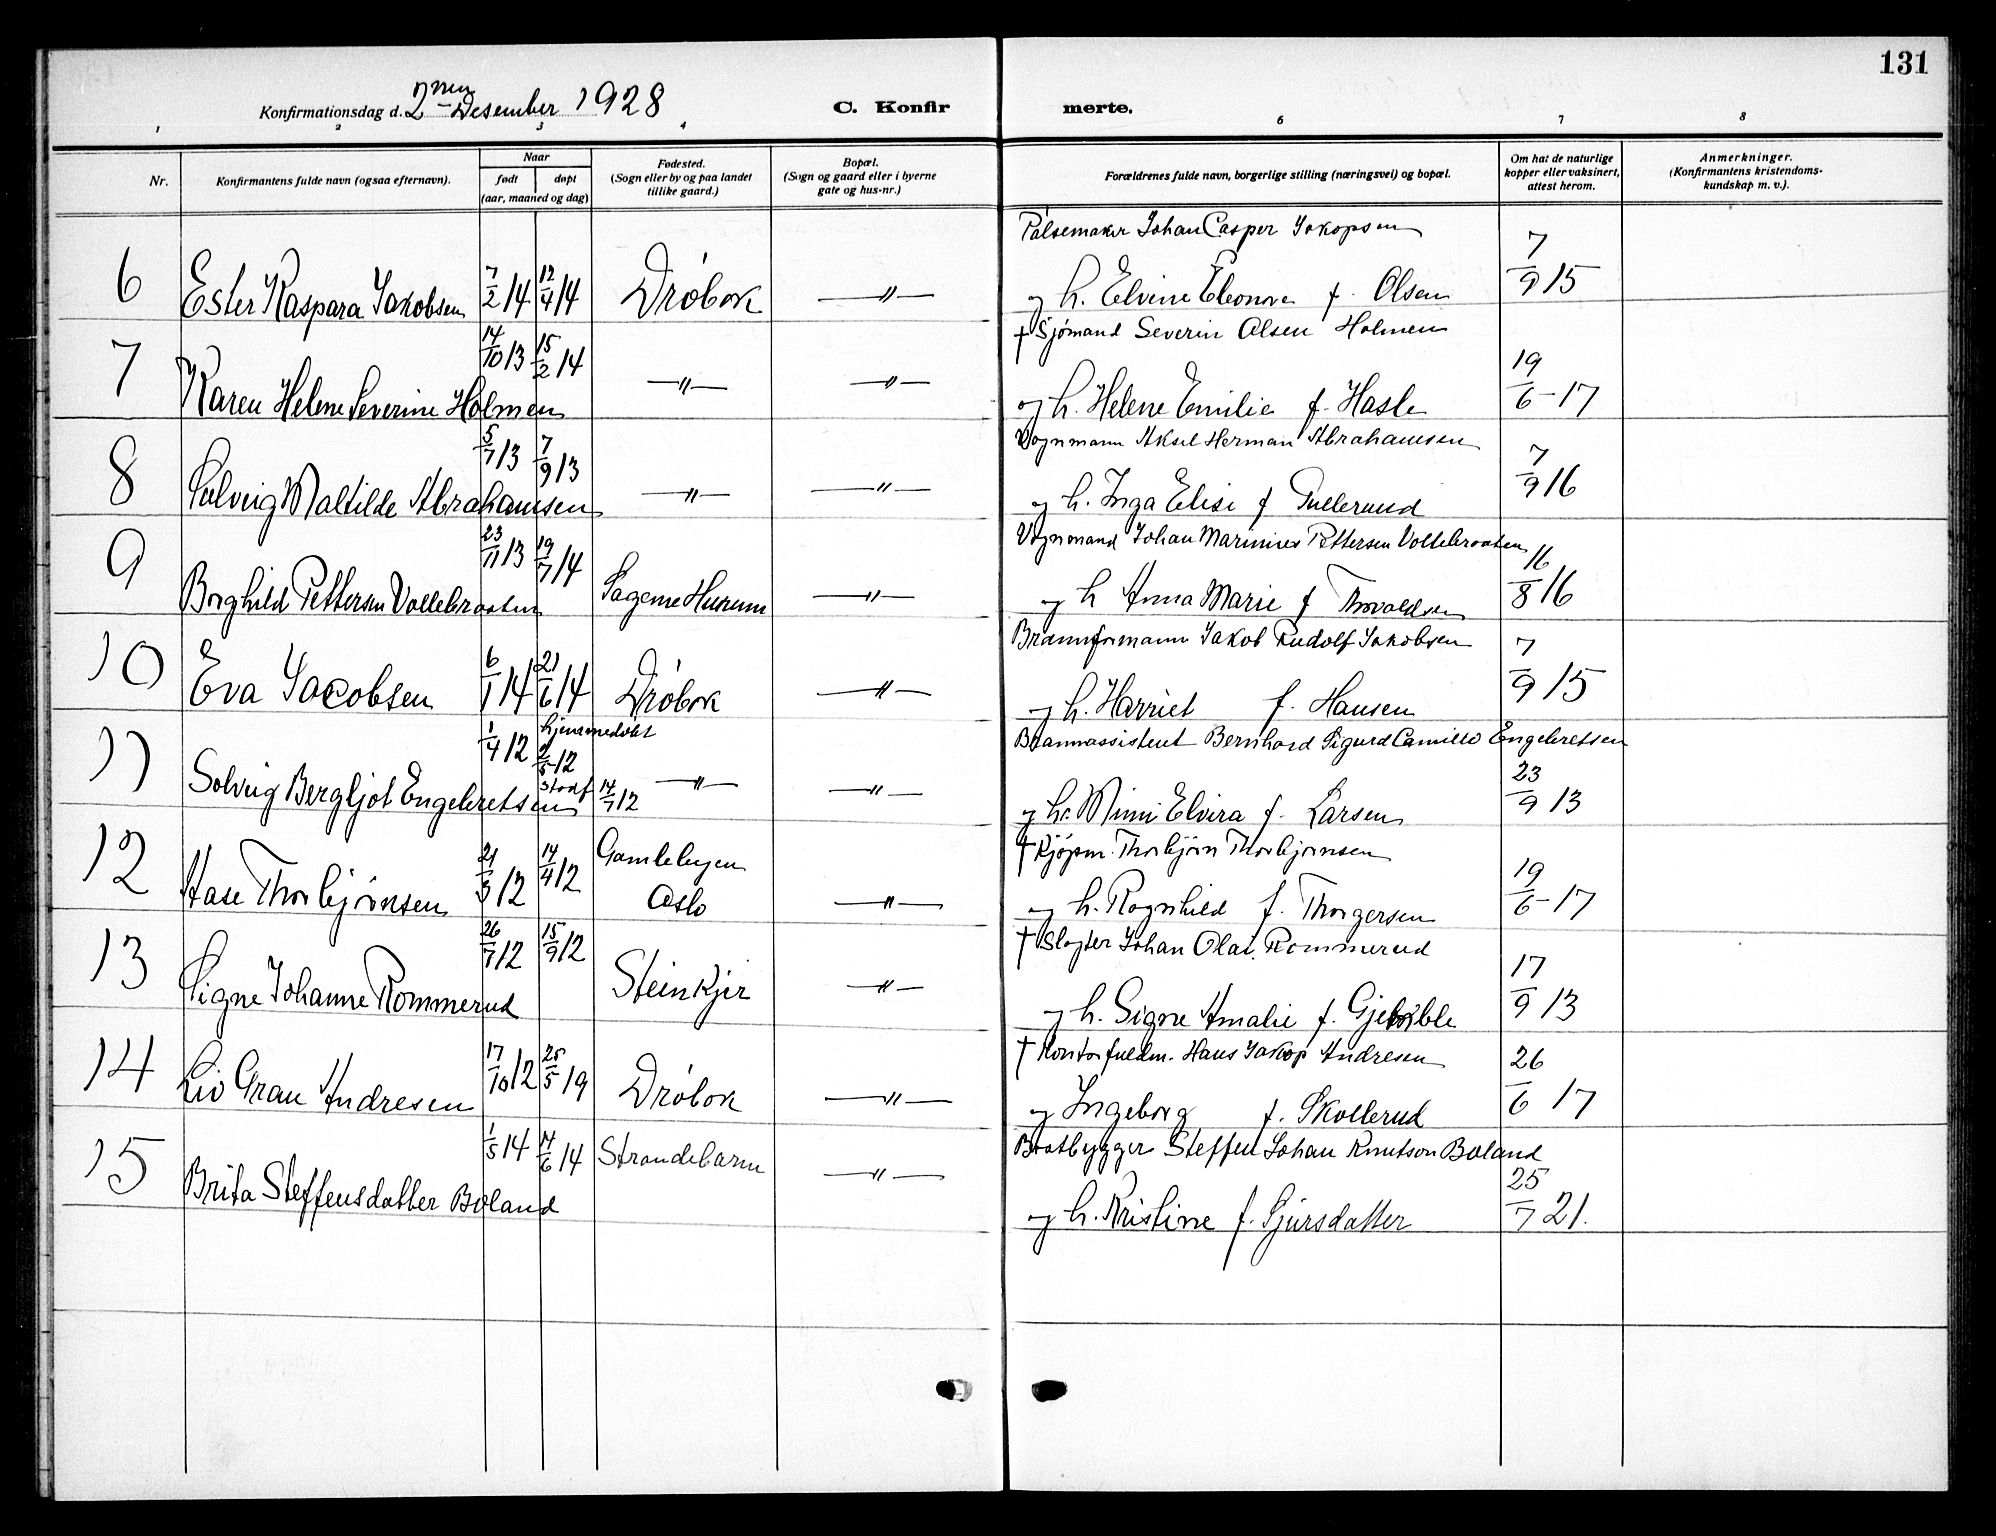 131
Konfirmationsdag d. 2nen Desember 1928
C. Konfirmerte.
1 2 3 4 6 7 8
Nr.
Konfirmantens fulde navn (ogsaa efternavn).
Naar
født døpt
(aar, maaned og dag)
Fødested.
(Sogn eller by og paa landet
tillike gaard.)
Bopæl.
(Sogn og gaard eller i byerne
gate og hus-nr.)
Forældrenes fulde navn, borgerlige stilling (næringsvei) og bopæl.
Om hat de naturlige
kopper eller vaksinert,
attest herom.
Anmerkninger.
(Konfirmantens kristendoms-
kundskap m. v.).
Pølsemaker Johan Casper Jakopsen
6 Ester Kaspara Jakobsen 7/2 14 12/4 14 Drøbak —"— og h. Elvine Eleonore f. Olsen 7/9 15
† Sjømand Severin Olsen Holmen
7 Karen Helene Severine Holmen 14/10 13 15/2 14 —"— —"— og h. Helene Emilie f. Hasle 19/6-17
Vognmann Aksel Herman Abrahamsen
8 Solveig Matilde Abrahamsen 5/7 13 7/9 13 —"— —"— og h. Inga Elise f 7/9 16
Vognmand Johan Marinius Pettersen Vollebraaten
9 Borghild Pettersen Vollebraaten 23/11 13 19/7 14 Sagene Hurum —"— og h Anna Marie f Thovaldsen 16/8 16
Brannformann Jakob Rudolf Jakobsen
10 Eva Jacobsen 6/1 14 21/6 14 Drøbak —"— og h. Harriet f. Hansen 7/9 15
Brannassistent Bernhard Sigurd Camillo Engebretsen
11 Solveig Bergljot Engebretsen 1/4 12 hjemmedøbt 2/5-12 stadf 14/7 12 —"— —"— og h. Mimi Elvira f. Larsen 23/9 13
† Kjøpm. Thorbjørn Thorbjørnsen
12 Aase Thorbjørnsen 21/3 12 14/4 12 Gamlebyen Oslo —"— og h. Ragnhild f. Thorgersen 19/6-17
† Slagter Johan Olav Rommerud
13 Signe Johanne Rommerud 26/7 12 15/9 12 Steinkjer —"— og h. Signe Amalie f. 17/9 13
† Kontorfuldm. Hans Jakop Andresen
14 Liv Grau Andresen 17/10 12 25/5 19 Drøbak —"— og Ingeborg f. Skollerud 26/6 17
Baatbygger Steffen Johan Knutson Boland
15 Brita Steffensdatter Boland 1/5 14 14/6 14 Strandebarm —"— og h. Kristine f. Sjursdatter 25/7 21.